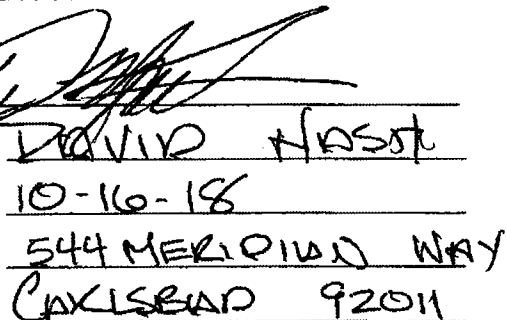 DAVID
10-16-18
544 MERIDIAN WAY
CARLSBAD 92011